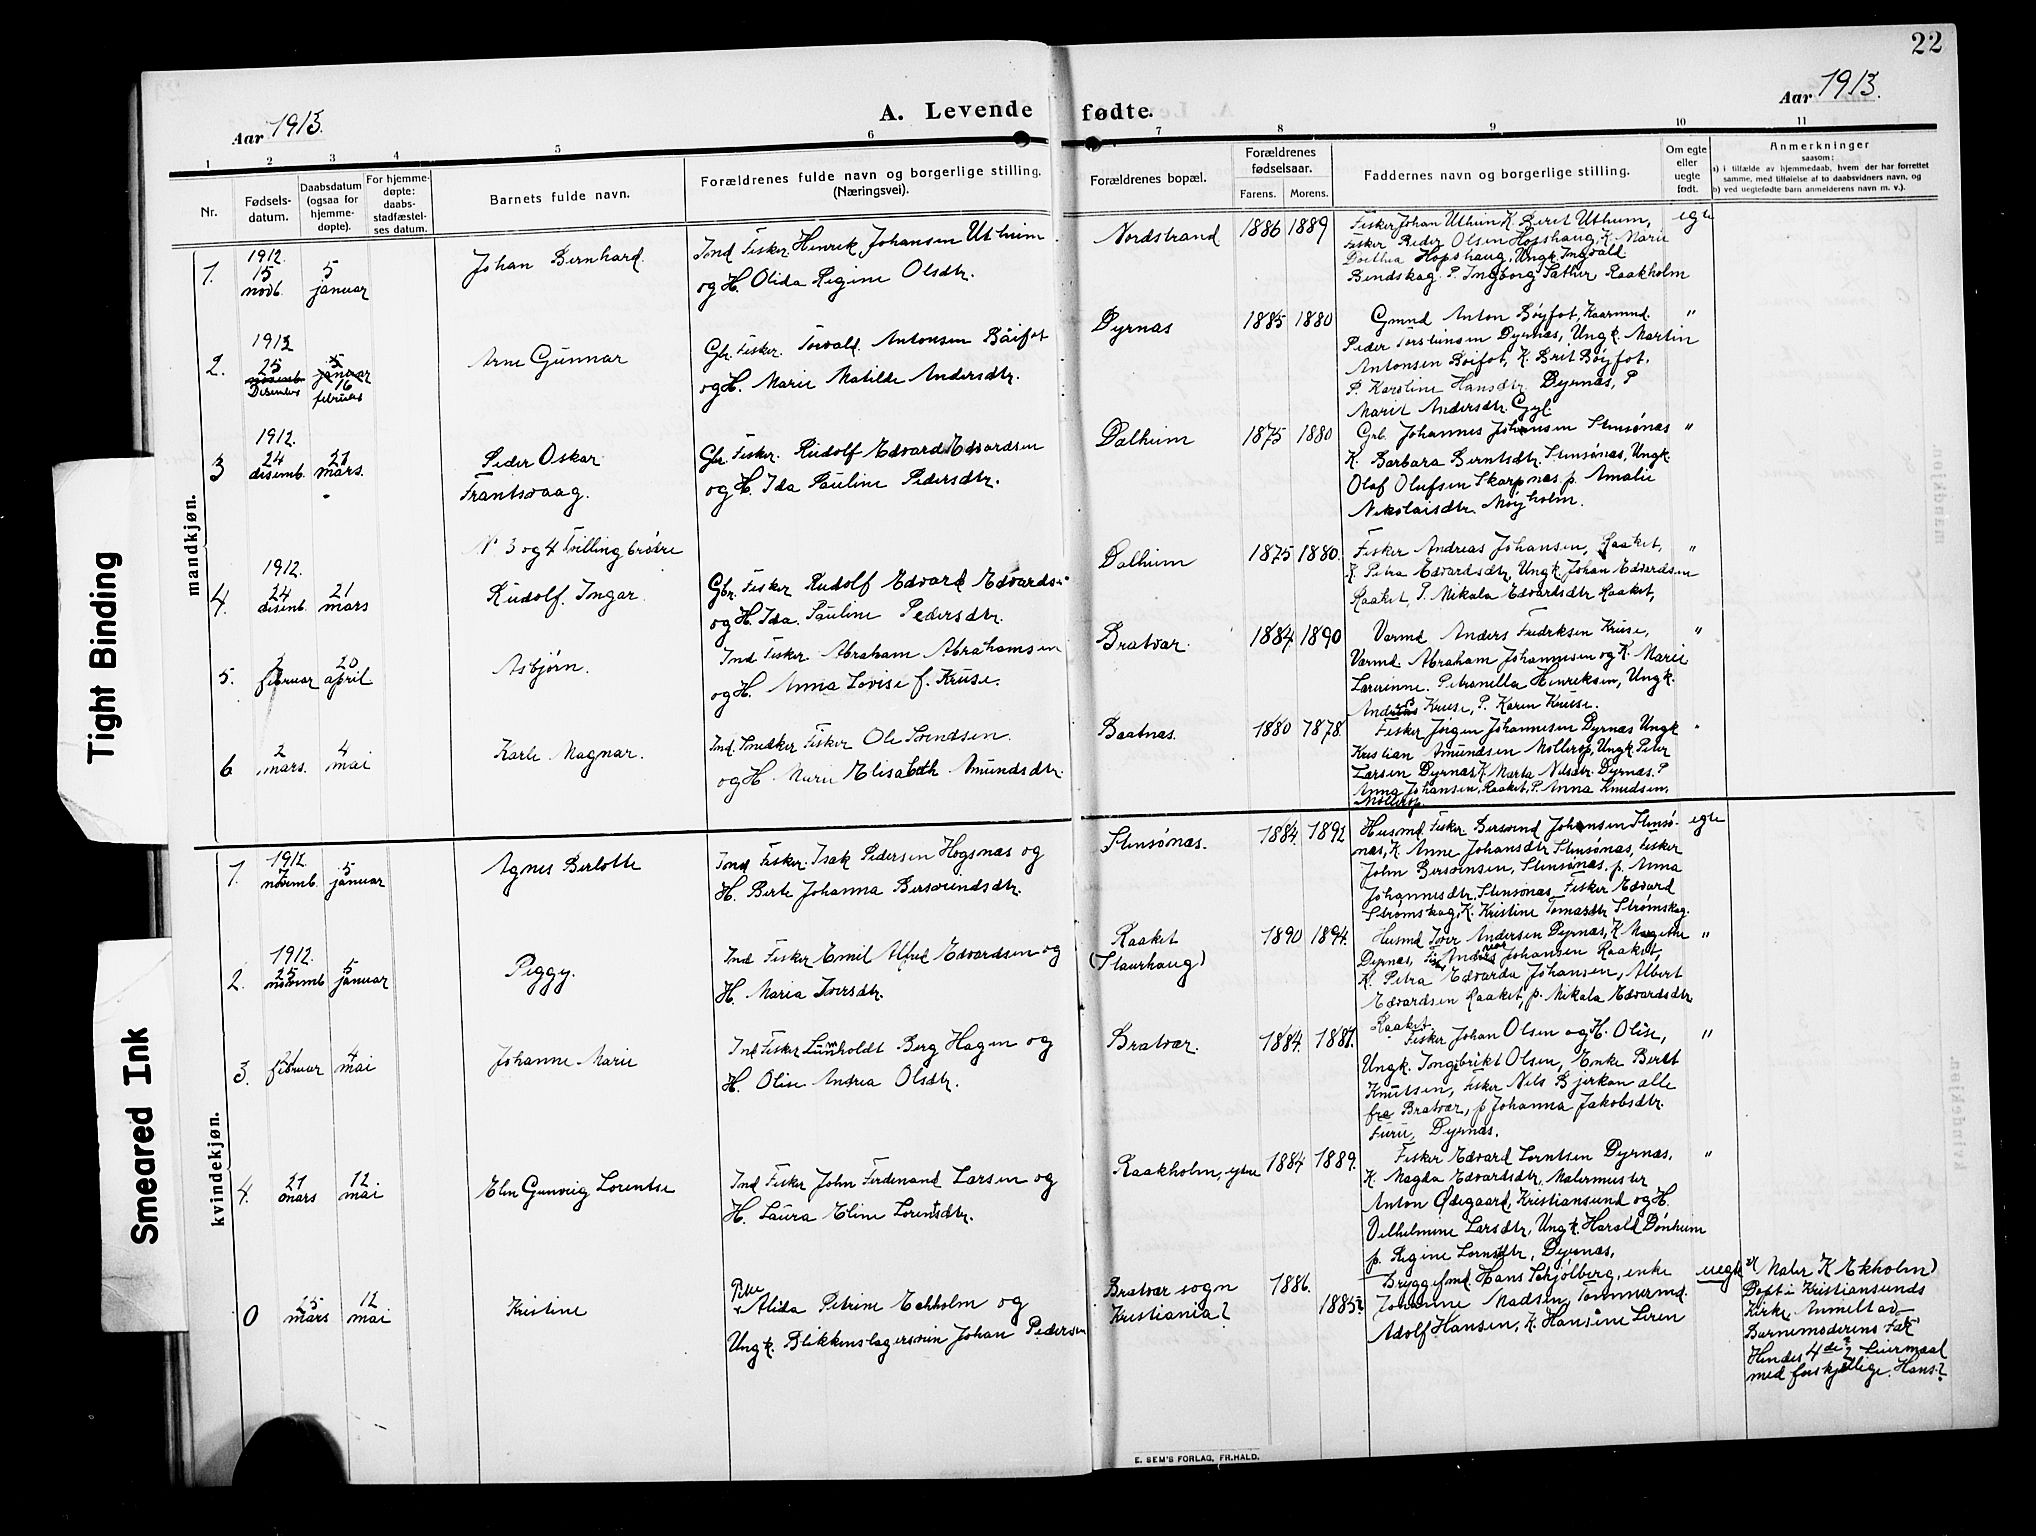 22
Aar 1913.
A. Levende fødte.
Aar 1913.
1 2 3 4 5 6 7 8 9 10 11
Nr.
Fødsels-
datum.
Daabsdatum
(ogsaa for
hjemme-
døpte).
For hjemme-
døpte:
daabs-
stadfæstel-
ses datum.
Barnets fulde navn.
Forældrenes fulde navn og borgerlige stilling.
(Næringsvei).
Forældrenes bopæl.
Forældrenes
fødselsaar.
Farens. Morens.
Faddernes navn og borgerlige stilling.
Om egte
eller
uegte
født.
Anmerkninger
saasom:
a) i tilfælde av hjemmedaab, hvem der har forrettet
samme, med tilføielse af to daabsvidners navn, og
b) ved uegtefødte barn anmelderens navn m. v.).
mandkjøn.
1.
1912.
15
novb.
5
januar
Johan Bernhard.
Ind Fisker Henrik Johansen Utheim
og H. Olida Regine Olsdtr.
Nordstrand
1886 1889
Fisker Johan Utheim K. Beret Utheim,
Fisker Peder Olsen Hopshaug, K. Marie
Dorthea Hopshaug, Ungk. Ingvald
Bendskag P. Ingborg Sather, Raakholm
egte
2.
1912
25
novemb.
Desember
5
januar
16
februar
Arne Gunnar
Gbr. Fisker. Torvald Antonsen Bøifot
og H. Marie Matilde Andersdtr.
Dyrnas
1885 1880
Gmnd Anton Bøyfot, Kaarmnd.
Peder Torsteinsen Dyrnas, Ungk. Martin
Antonsen Bøifot, K. Brit Bøyfot,
P. Karoline Hansdtr. Dyrnas, P
Marit Andersdtr. Gyl.
"
3
1912.
24
disemb.
21
mars.
Peder Oskar
Frantsvaag.
Gbr. Fisker. Rudolf Edvard Edvardsen
og H. Ida Pauline Pedersdtr.
Dalheim
1875 1880
Grb. Johannes Johansen Stensønas
K. Barbara Berntsdtr. Stensønas, Ungk.
Olaf Olufsen Skarpnas p. Amalie
Nikolaisdtr. Møyholm.
"
N. 3 og 4 Tvillingbrødre
4.
1912.
24
disemb.
21
mars
Rudolf. Ingar.
Gbr. Fisker Rudolf Edvard Edvardsen
og H. Ida. Pauline Pedersdtr.
Dalheim
1875 1880.
Fisker Andreas Johansen, Raaket,
K. Petra Edvardsdtr, Ungk Johan Edvardsen
Raaket, P. Nikala Edvardsdtr Raaket,
"
5.
1
februar
20
april
Asbjørn.
Ind Fisker Abraham Abrahamsen
og H. Anna Lovise f. Kruse.
Bratvar.
1884 1890
Varmd Anders Fredriksen Kruse,
Varmd. Abraham Johannesen og K. Marie
Lærerinne. Petranella Henriksen, Ungk.
Andreas Kruse, P. Karen Kruse.
"
6
2
mars.
4
mai
Karle Magnar.
Ind. Snedker Fisker Ole Svendsen.
og H. Marie Elisabeth Amundsdtr.
Baatnas.
1880 1878.
Fisker Jørgen Johannesen Dyrnas Ungk
Kristian Amundsen Mollerop, Ungk. Peter
Larsen Dyrnas K. Marta Nilsdtr. Dyrnas. P
Anna Johansen, Raaket, P. Anna Knudsen,
Mollerop
"
kvindekjøn.
1.
1912
7
novemb.
5
januar
Agnes Berlotte
Ind Fisker. Isak Pedersen Hogsnas og
H. Berte Johanna Bersvendsdtr.
Stensønas.
1884. 1892
Husmd Fisker Bersvend Johansen Stensø-
nas, K. Anne Johansdtr Stensønas, Fisker
John Bersvensen, Stensønas. p. Anna
Johannesdtr. Stensønas, Fisker Edvard
Strømskag, K. Kristine Tomasdtr Strømskag.
egte
2.
1912.
25
novemb
5
januar
Peggy.
Ind Fisker Emil Alfred Edvardsen og
H. Maria Iversdtr.
Raaket
(Staurhaug)
1890 1894.
Husmd Iver Andersen Dyrnas, K Magrethe
Dyrnas, Fisker Andreas Johansen Raaket,
K. Petra Edvarda Johansen, Albert
Edvardsen Raaket, p. Nikala Edvardsdtr.
Raaket.
"
3.
1
februar
4
mai
Johanne Marie
Ind Fisker Lumholdt Berg Hagen og
H. Olise Andrea Olsdtr.
Bratvar.
1884. 1881.
Fisker Johan Olsen og H. Olise,
Ungk. Ingebrikt Olsen, Enke Beret
Knutsen, Fisker Nils Bjerkan alle
fra Bratvær, p Johanna Jakobsdtr.
Furu, Dyrnas.
"
4.
21
mars
12
mai
Elen Gunveig Lorentse
Ind Fisker John Ferdenand Larsen og
H. Laura Eline Lorentsdtr.
Raakholm, ytre
1884 1889.
Fisker Edvard Lorntsen Dyrnas,
K. Magda Edvardsdtr. Malermester
Anton Ødegaard, Kristiansund og H.
Vilhelmine Larsdtr, Ungk. Harald Bønheim
p. Regine Lorntsdtr, Dyrnas,
"
0
25
mars
12
mai
Kristine
Pike
Alida Petrine Ekholm og
Ungk. Blikkenslagersvein Johan Pedersen
Bratvær sogn
Kristiania?
1886.
1885?
Bryggefmd. Hans Schjølberg, enke
Johanne Madsen, Tømmermd.
Adolf Hansen, K. Hansine Leren
uegte
Maler K Ekholm)
Døpt i Kristiansunds
Kirke. Anmelt av
Barnemoderens Far
Hendes 4de? Leiermaal
med forskjellige. Hans?
E. SEM'S FORLAG, FR.HALD.
Tight Binding
Smeared Ink